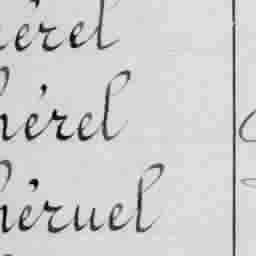 hérel
hérel
héruel